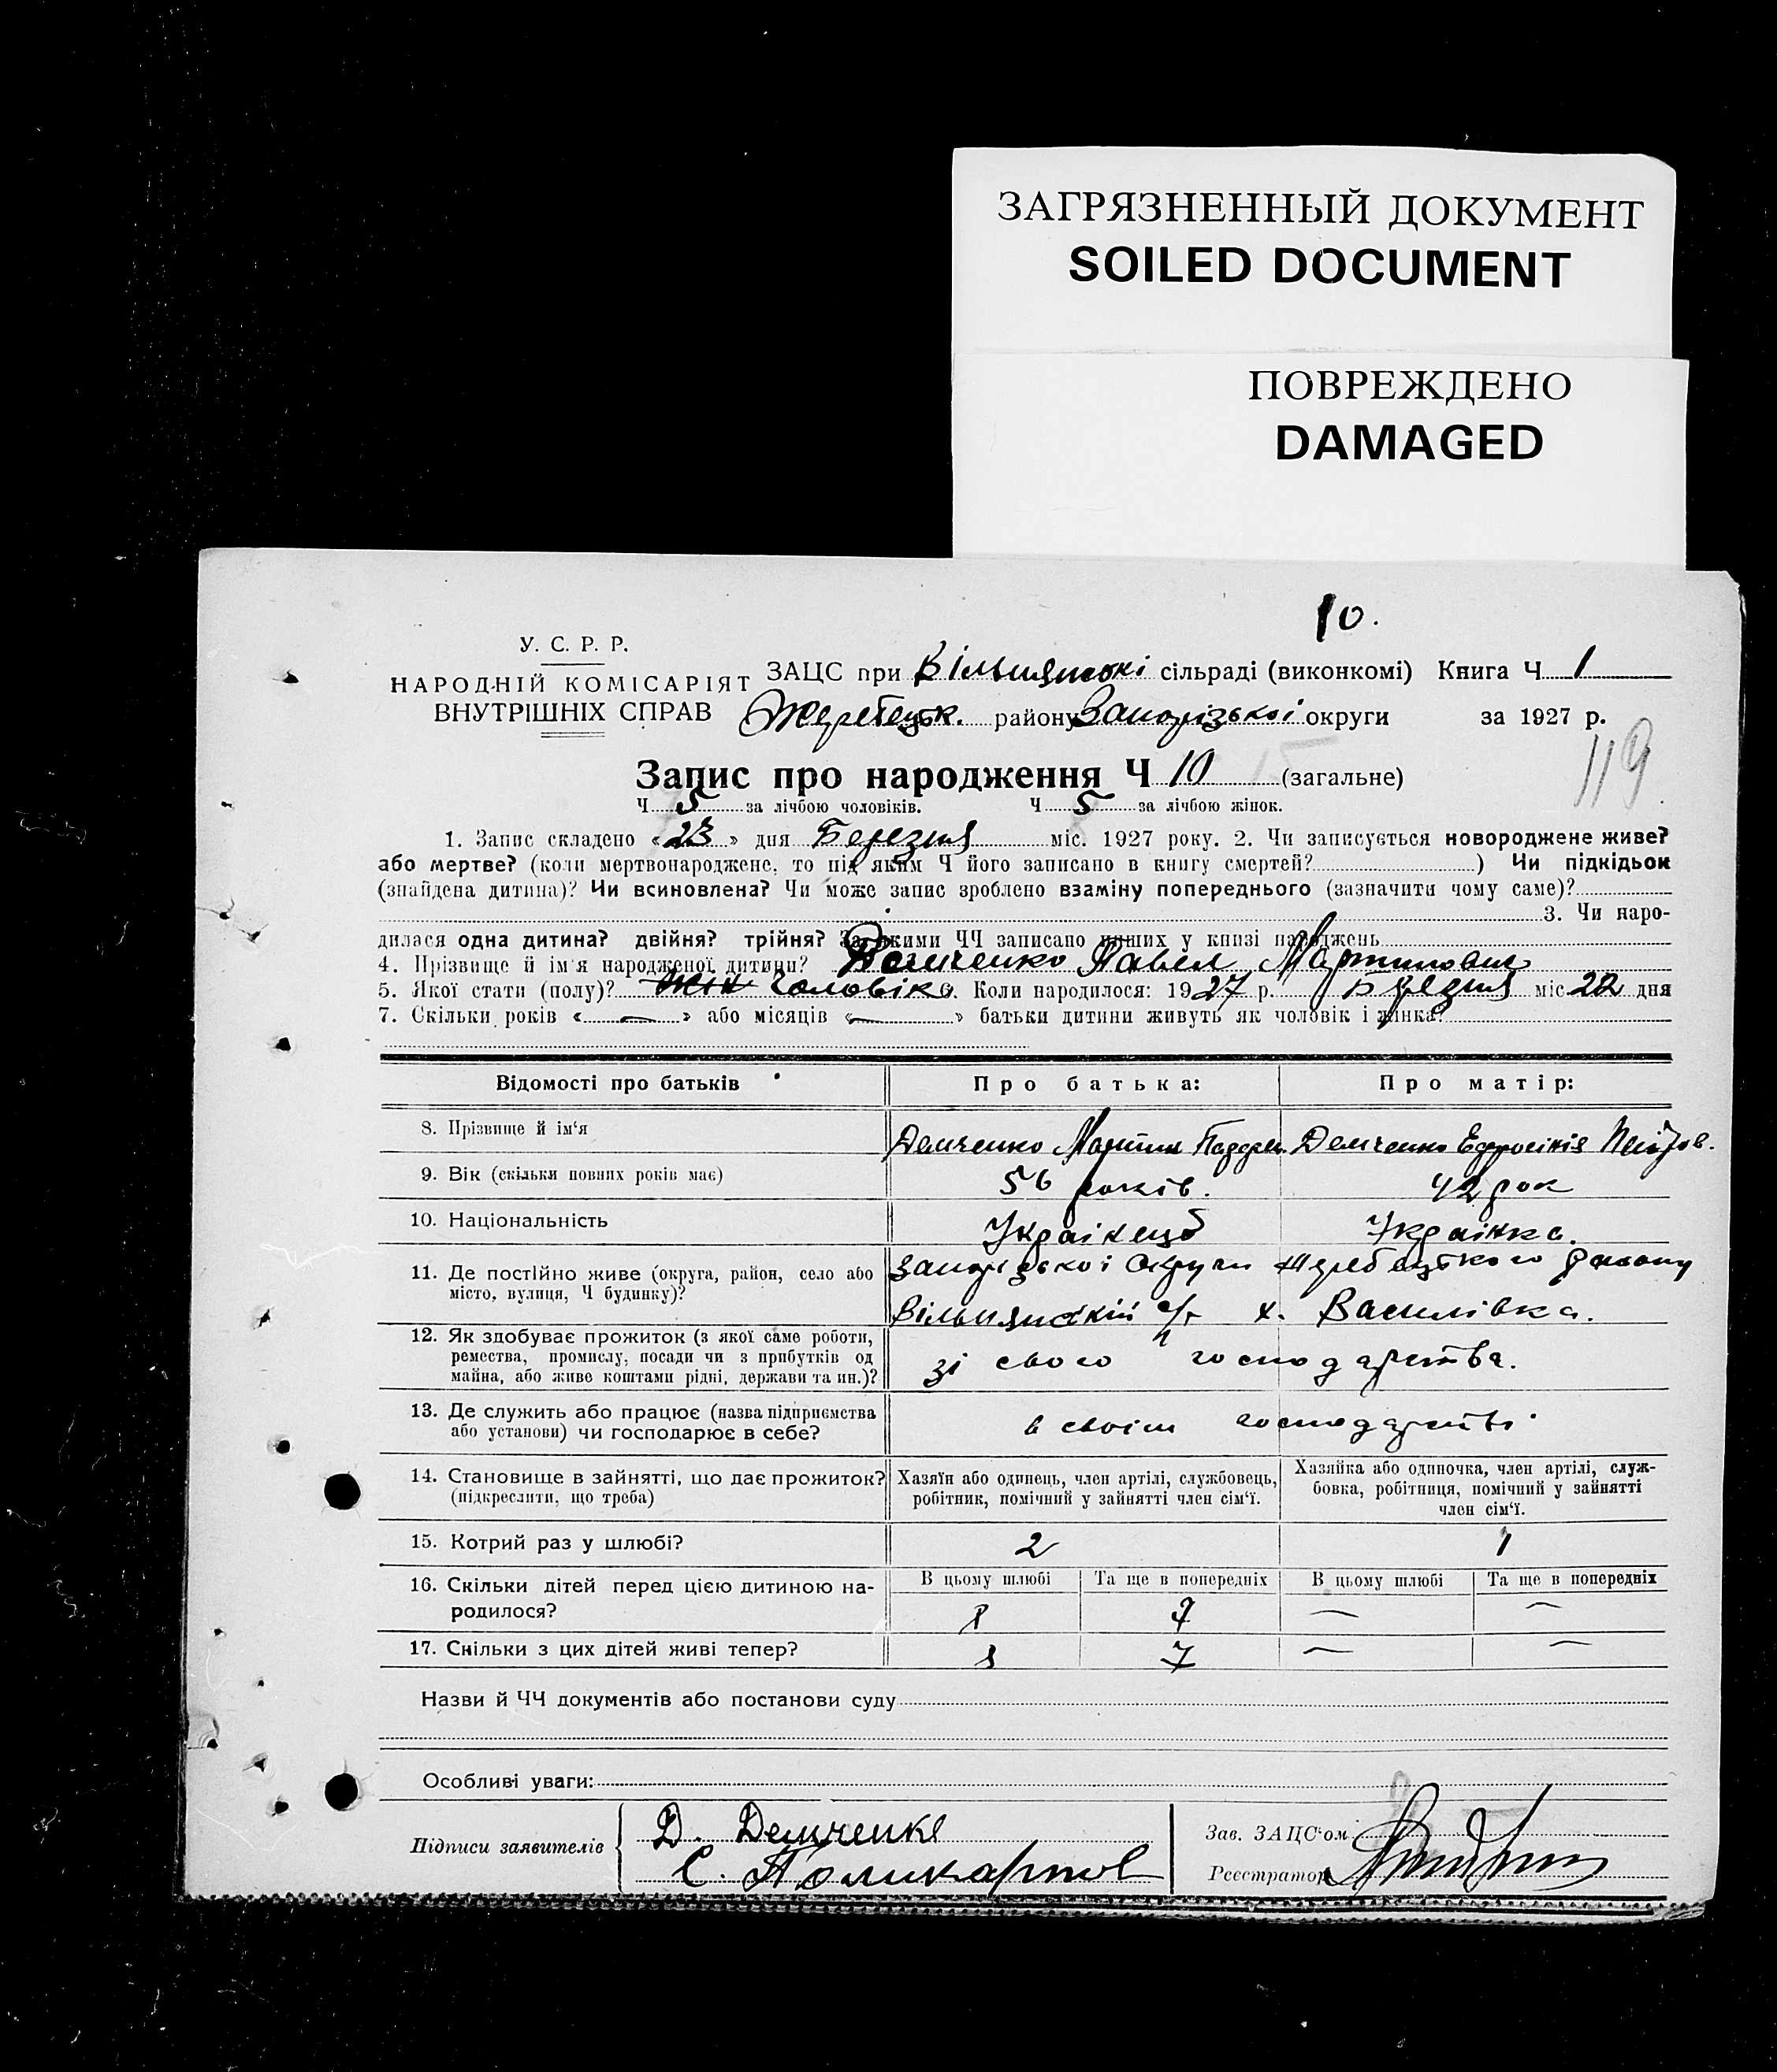 ЗАГРЯЗНЕННЫЙ ДОКУМЕНТ
SOILED DOCUMENT
ПОВРЕЖДЕНО
DAMAGED
10.
У. С. Р. Р.
НАРОДНІЙ КОМІСАРІЯТ
ВНУТРІШНІХ СПРАВ
ЗАЦС при сільраді (виконкомі) Книга Ч 1
Жеребецьк. району Запорізької округи за 1927 р.
119
Запис про народження Ч 10 (загальне)
Ч 5 за лічбою чоловіків. Ч 5 за лічбою жінок.
1. Запис складено «23» дня Березня міс. 1927 року. 2. Чи записується новороджене живе?
або мертве? (коли мертвонароджене, то під яким Ч його записано в книгу смертей? ) Чи підкідьок
(знайдена дитина)? Чи всиновлена? Чи може запис зроблено взаміну попереднього (зазначити чому саме)?
3. Чи наро-
дилася одна дитина? двійня? трійня? За якими ЧЧ записано инших у книзі народжень
4. Прізвище й ім'я народженої дитини? Павел Мартинович
5. Якої стати (полу)? жін чоловік 6. Коли народилося: 1927 р. Березня міс 22 дня
7. Скільки років « — » або місяців « — » батьки дитини живуть як чоловік і жінка?
Відомості про батьків
Про батька:
Про матір:
8. Прізвище й ім'я Демченко Мартин Демченко Ефросінія
9. Вік (скільки повних років має) 56 років. 42 рок
10. Національність Українець Українка.
11. Де постійно живе (округа, район, село або Запорізької Округи Жеребецького району
місто, вулиця, Ч будинку)? с/р х. Василівка.
12. Як здобуває прожиток (з якої саме роботи,
ремества, промислу, посади чи з прибутків од зі свого господарства.
майна, або живе коштами рідні, держави та ин.)?
13. Де служить або працює (назва підприємства в своїм господарстві
або установи) чи господарює в себе?
14. Становище в зайнятті, що дає прожиток?
(підкреслити, що треба)
Хазяїн або одинець, член артілі, службовець,
робітник, помічний у зайнятті член сім'ї.
Хазяйка або одиночка, член артілі, служ-
бовка, робітниця, помічний у зайнятті
член сім'ї.
15. Котрий раз у шлюбі? 2 1
16. Скільки дітей перед цією дитиною на-
родилося?
В цьому шлюбі Та ще в попередніх В цьому шлюбі Та ще в попередніх
7 — —
17. Скільки з цих дітей живі тепер? 7 — —
Назви й ЧЧ документів або постанови суду
Особливі уваги:
Підписи заявителів
Д. Демченко
С. Поликарпов
Зав. ЗАЦС'ом
Реєстратор